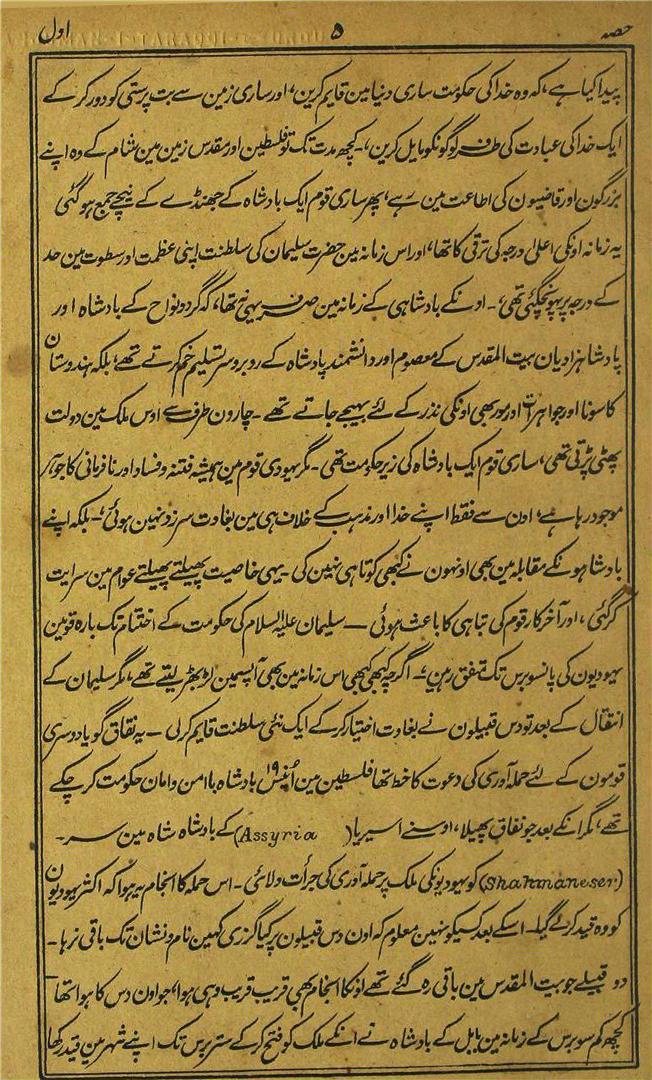 حصہ ۵ اول
پیدا کیا ہے، کہ وہ خدا کی حکومت ساری دنیا مین قایم کرین، اور ساری زمین سے بت پرستی کو دور کر کے
ایک خدا کی عبادت کی طرف لوگونکو مایل کرین،۔ کچھ مدت تک تو فلسطین اور مقدس زمین مین شام کے وہ اپنے
بزرگون اور قاضیون کی اطاعت مین رہے، پھر ساری قوم ایک بادشاہ کے جھنڈے کے نیچے جمع ہو گئی
یہ زمانہ اونکی اعلیٰ درجہ کی ترقی کا تھا، اور اس زمانہ مین حضرت سلیمان کی سلطنت اپنی عظمت اور سطوت مین حد
کے درجہ پر پہونچگئی تھی،۔ اونکے بادشاہی کے زمانہ مین صرف یہی نہ تھا، کہ گرد و نواح کے بادشاہ اور
پادشاہزادیان بیت المقدس کے معصوم اور دانشمند پادشاہ کے روبرو سر تسلیم خم کرتے تھے، بلکہ ہندوستان
کا سونا اور جواہرات اور مور بھی اونکی نذر کے لئے بہیجے جاتے تھے ۔ چارون طرف سے اوس ملک مین دولت
پھٹی پڑتی تھی، ساری قوم ایک بادشاہ کی زیر حکومت تھی ۔ مگر یہودی قوم مین ہمیشہ فتنہ و فساد اور نافرمانی کا جوہر
موجود رہا ہے، اون سے فقط اپنے خدا اور مذہب کے خلاف ہی مین بغاوت سرزد نہین ہوئی،۔ بلکہ اپنے
بادشاہونکے مقابلہ مین بھی اونہون نے کبھی کوتاہی نہین کی ۔ یہی خاصیت پھیلتے پھیلتے عوام مین سرایت
کر گئی ، اور آخر کار قوم کی تباہی کا باعث ہوئی ۔ سلیمان علیہ السلام کی حکومت کے اختتام تک بارہ قومین
یہودیون کی پانسو برس تک متفق رہین،۔ اگرچہ کبھی کبھی اس زمانہ مین بھی آپسمین لڑ بھڑ لیتے تھے، مگر سلیمان کے
انتقال کے بعد تو دس قبیلون نے بغاوت اختیار کر کے ایک نئی سلطنت قایم کر لی ۔ یہ نقاق گویا دوسری
قومون کے لئے حملہ آوری کی دعوت کا خط تھا فلسطین مین اُنیس ۱۹ بادشاہ باامن و امان حکومت کر چکے
تھے، مگر انکے بعد جو نفاق پھیلا، اوسنے اسیریا (Assyria) کے بادشاہ شاہ مین سر۔
(Shahmaneser) کو یہودیونکی ملک پر حملہ آوری کی جرأت دلائی ۔ اس حملہ کا انجام یہ ہوا کہ اکثر یہودیون
کو وہ قید کر لے گیا۔ اسکے بعد کسیکو نہین معلوم کہ اون دس قبیلون پر کیا گزری کہین نام و نشان تک باقی نرہا۔
دو قبیلے جو بیت المقدس مین باقی رہ گئے تھے اونکا انجام بھی قریب قریب وہی ہوا، جو اون دس کا ہوا تھا
کچھ کم سو برس کے زمانہ مین بابل کے بادشاہ نے انکے ملک کو فتح کر کے ستر برس تک اپنے شہر مین قید رکھا